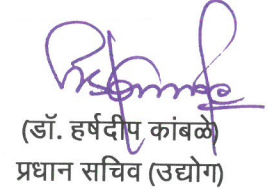 (डॉ. हर्षदीप कांबळे)
प्रधान सचिव (उद्योग)